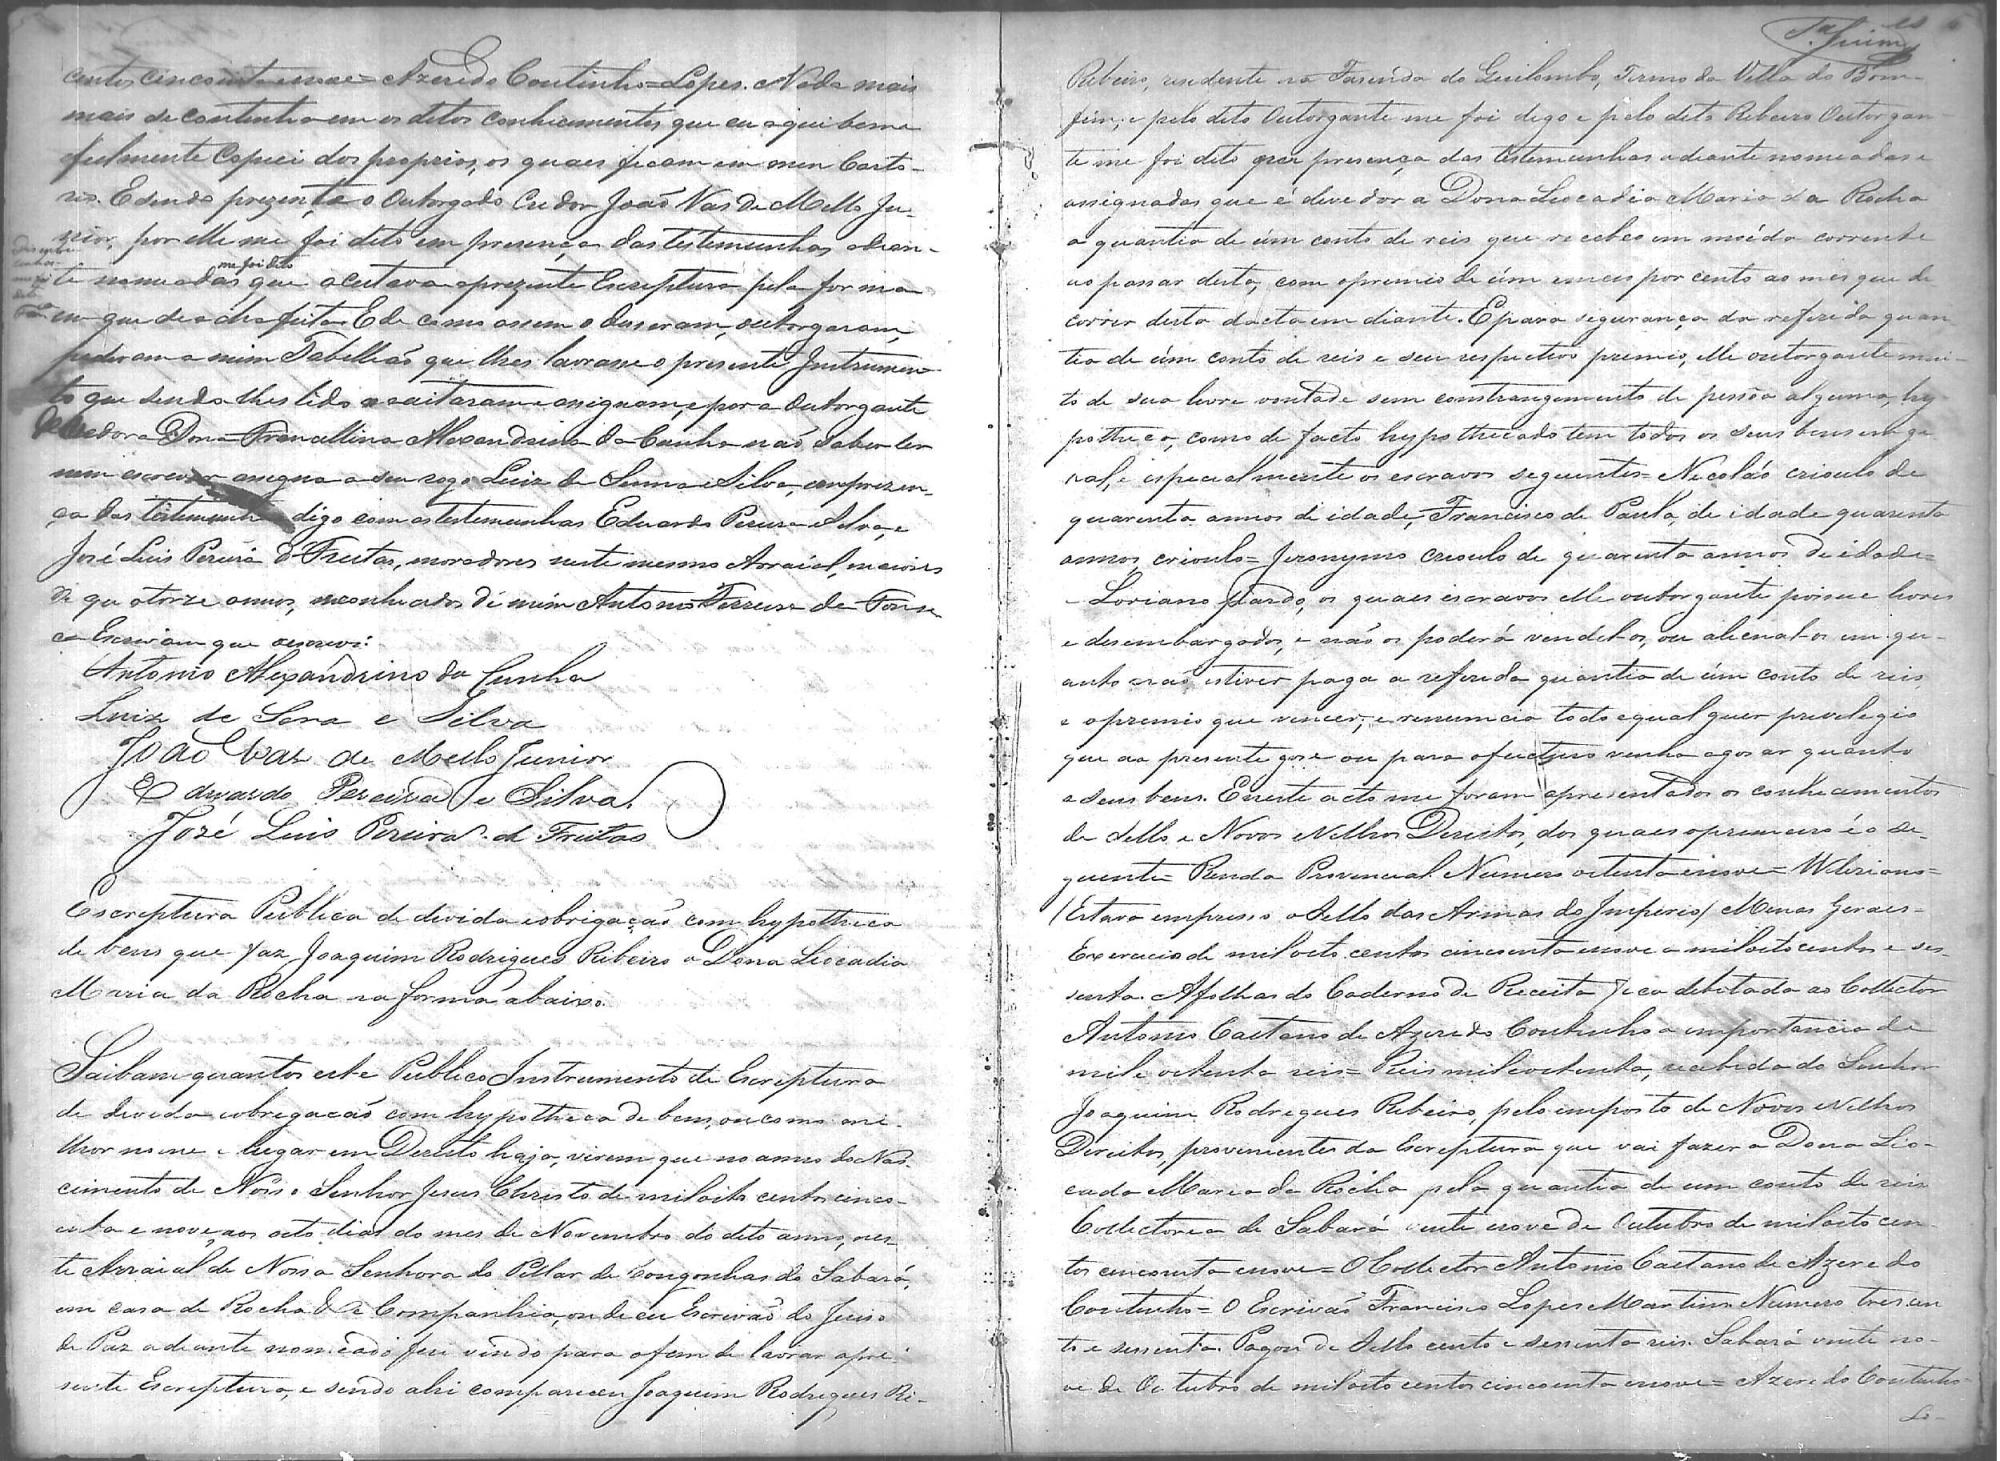 centos cincoenta enove= Azeredo Coutinho= Lopes. Nada mais
mais se continha em os ditos conhecimentos que eu aqui bem e
fielmente copiei dos proprios, os quaes ficam em meu Carto-
rio. E sendo prezente o Outorgado Credor João Vas de Mello Ju-
nior, por elle me foi dito em presença das testemunhas adian-
te nomeadas, que aceitava aprezente Escreptura pela forma
me foi dito
em que se acha feita. E de como assim o diseram, outorgaram,
pediram a mim Tabelliáo que lhes lavrasse o presente Instrumen-
to que sendo-lhes lido aceitaram e asignam, e por a Outorgante
Devedora Dona Francellina Alexandrina da Cunha não saber ler
nem escrever asigna a seu rogo Luiz de Senna e Silva, em prezen-
ça das testemunhas digo com as testemunhas Eduardo Pereira e Silva, e
José Luis Pereira d'Freitas, moradores neste mesmo Arraial, maiores
de quatorze annos, reconhecidos de mim Antonio Ferreira da Fonse
ca Escrivam que oescrevi.
Antonio Alexandrino da Cunha
Luiz de Sena e Silva
João Vaz de Mello Junior
Eduardo Pereira e Silva.
Jozé Luis Pereira de Freitas
Escreptura Publica de divida eobrigaçaõ com hypotheca
de bens que faz Joaquim Rodrigues Ribeiro a Dona Liocadia
Maria da Rocha na forma abaixo.
Saibam quantos este Publico Instrumento de Escreptura
de devida eobrigacaõ com hypotheca de bens, ou como me-
lhor nome e lugar em Direito haja, virem que no anno do Nas-
cimento de Nosso Senhor Jesus Christo de miloito centos cinco-
enta e nove, aos oito dias do mes de Novembro do dito anno, nes-
te Arraial de Nossa Senhora do Pillar de Congonhas do Sabará,
em casa de Rocha & Companhia, onde eu Escrivão do Juiso
de Paz adiante nomeado fui vindo para ofim de lavrar apre-
sente Escreptura, e sendo ahi compareceu Joaquim Rodrigues Ri-
Ribeiro, residente na Fasenda do Guilombo, Termo da Villa do Bom-
fim; e pelo dito Outorgante me foi digo e pelo dito Ribeiro Outorgan-
te me foi dito por presença das testemunhas adiante nomeadas e
assignadas que é devedor a Dona Liocadia Maria da Rocha
a quantia de úm conto de reis que recebeo em moéda corrente
ao passar desta, com opremio de úm e meio por cento ao mes que de
correr desta dacta em diante. E para segurança da referida quan
tia de úm conto de reis e seu respectivo premio, elle outorgante mui-
to de sua livre vontade sem constrangimento de pessôa alguma, hy
potheca, como de facto hypothecado tem todos os seus bens em ge
ral, e especialmente os escravos seguintes= Nicoláo crioulo de
quarenta annos de idade, Francisco de Paula, de idade quarenta
annos, crioulo= Jeronymo creoulo de quarenta annos de idade=
- Loriano pardo, os quaes escravos elle outorgante possue livres
e desembargados, e não os poderá vendel-os, ou alienal-os em qu-
anto não estiver paga a referida quantia de úm conto de reis,
e opremio que vencer, e renuncia todo equal quer previlegio
que ao presente gose ou para ofucturo venha agosar quanto
a seus bens. E neste acto me foram apresentados os conhecimentos
de Sello e Novos eVelhos Direitos, dos quaes opremeiro é o se-
guente= Renda Provencial. Numero oitenta enove= 
(Estava empresso o Sello das Armas do Imperio) Minas Geraes-
Exercicio de miloito centos cincoenta enove a miloitocentos e ses-
senta. Afolhas do Caderno de Receita fica debitada ao Collector
Antonio Caetano de Azeredo Coutinho a importancia de
mil e oitenta reis= Reis mil eoitenta, recebida do Senhor
Joaquim Rodregues Ribeiro, pelo imposto de Novos eVelhos
Direitos, provenientes da Escreptura que vai fazer a Dona Lio-
cada Maria da Rocha pela quantia de um conto de reis
Collectorea de Sabará vinte enove de Outubro de miloito cen-
tos cincoenta enove= O Collector Antonio Caetano de Azeredo
Coutinho= O Escrivaõ Francisco Lopes Martins Numero trescen
to e sessenta. Pagou de Sello cento e sessenta reis. Sabará vinte no-
ve de Outubro de miloito centos cincoenta enove= Azeredo Coutinho=
Lo-